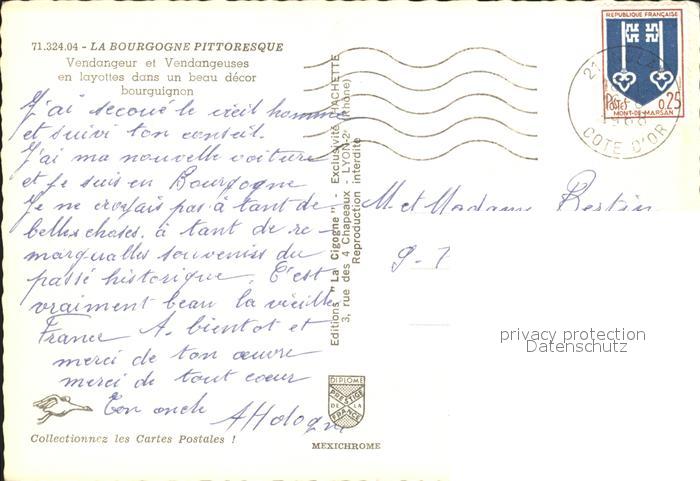 71.324.04 - LA BOURGOGNE PITTORESQUE
Vendangeur et Vendangeuses
en layottes dans un beau décor
bourguignon
J'ai secoué le vieil homme
et suivi ton conseil.
J'ai ma nouvelle voiture
et je suis en Bourgogne
Je ne croyais pas à tant de
belles choses, à tant de re-
marquables souvenirs du
passé historique. C'est
vraiment beau la vieille
France A bientot et
merci de ton œuvre
merci de tout cœur
Ton oncle
Collectionnez les Cartes Postales !
Editions "La Cigogne" - Exclusivité HACHETTE
3, rue des 4 Chapeaux - LYON-2e (Rhône)
Reproduction interdite
DIPLOME
PRESTIGE
DE LA
FRANCE
MEXICHROME
REPUBLIQUE FRANÇAISE
Postes 0,25
MONT-DE-MARSAN
21
1966
COTE D'OR
M. et Madame
9 -
privacy protection
Datenschutz